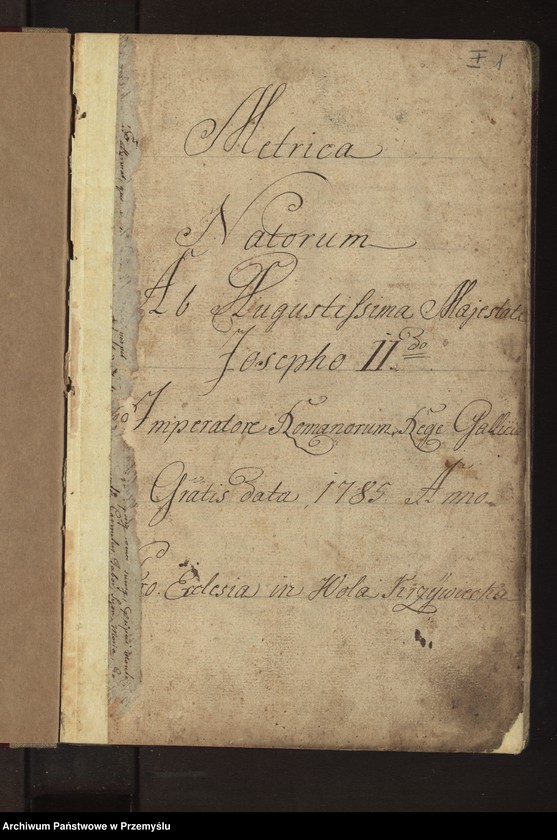 I 1
Metrica
Natorum
Ab Augustissima Majestate
Josepho II.do
Imperatore Romanorum, Rege Gallicia
Gratis data 1785 Anno
Pro. Ecclesia in Wola Krzÿwiecka
Archiwum Państwowe w Przemyślu